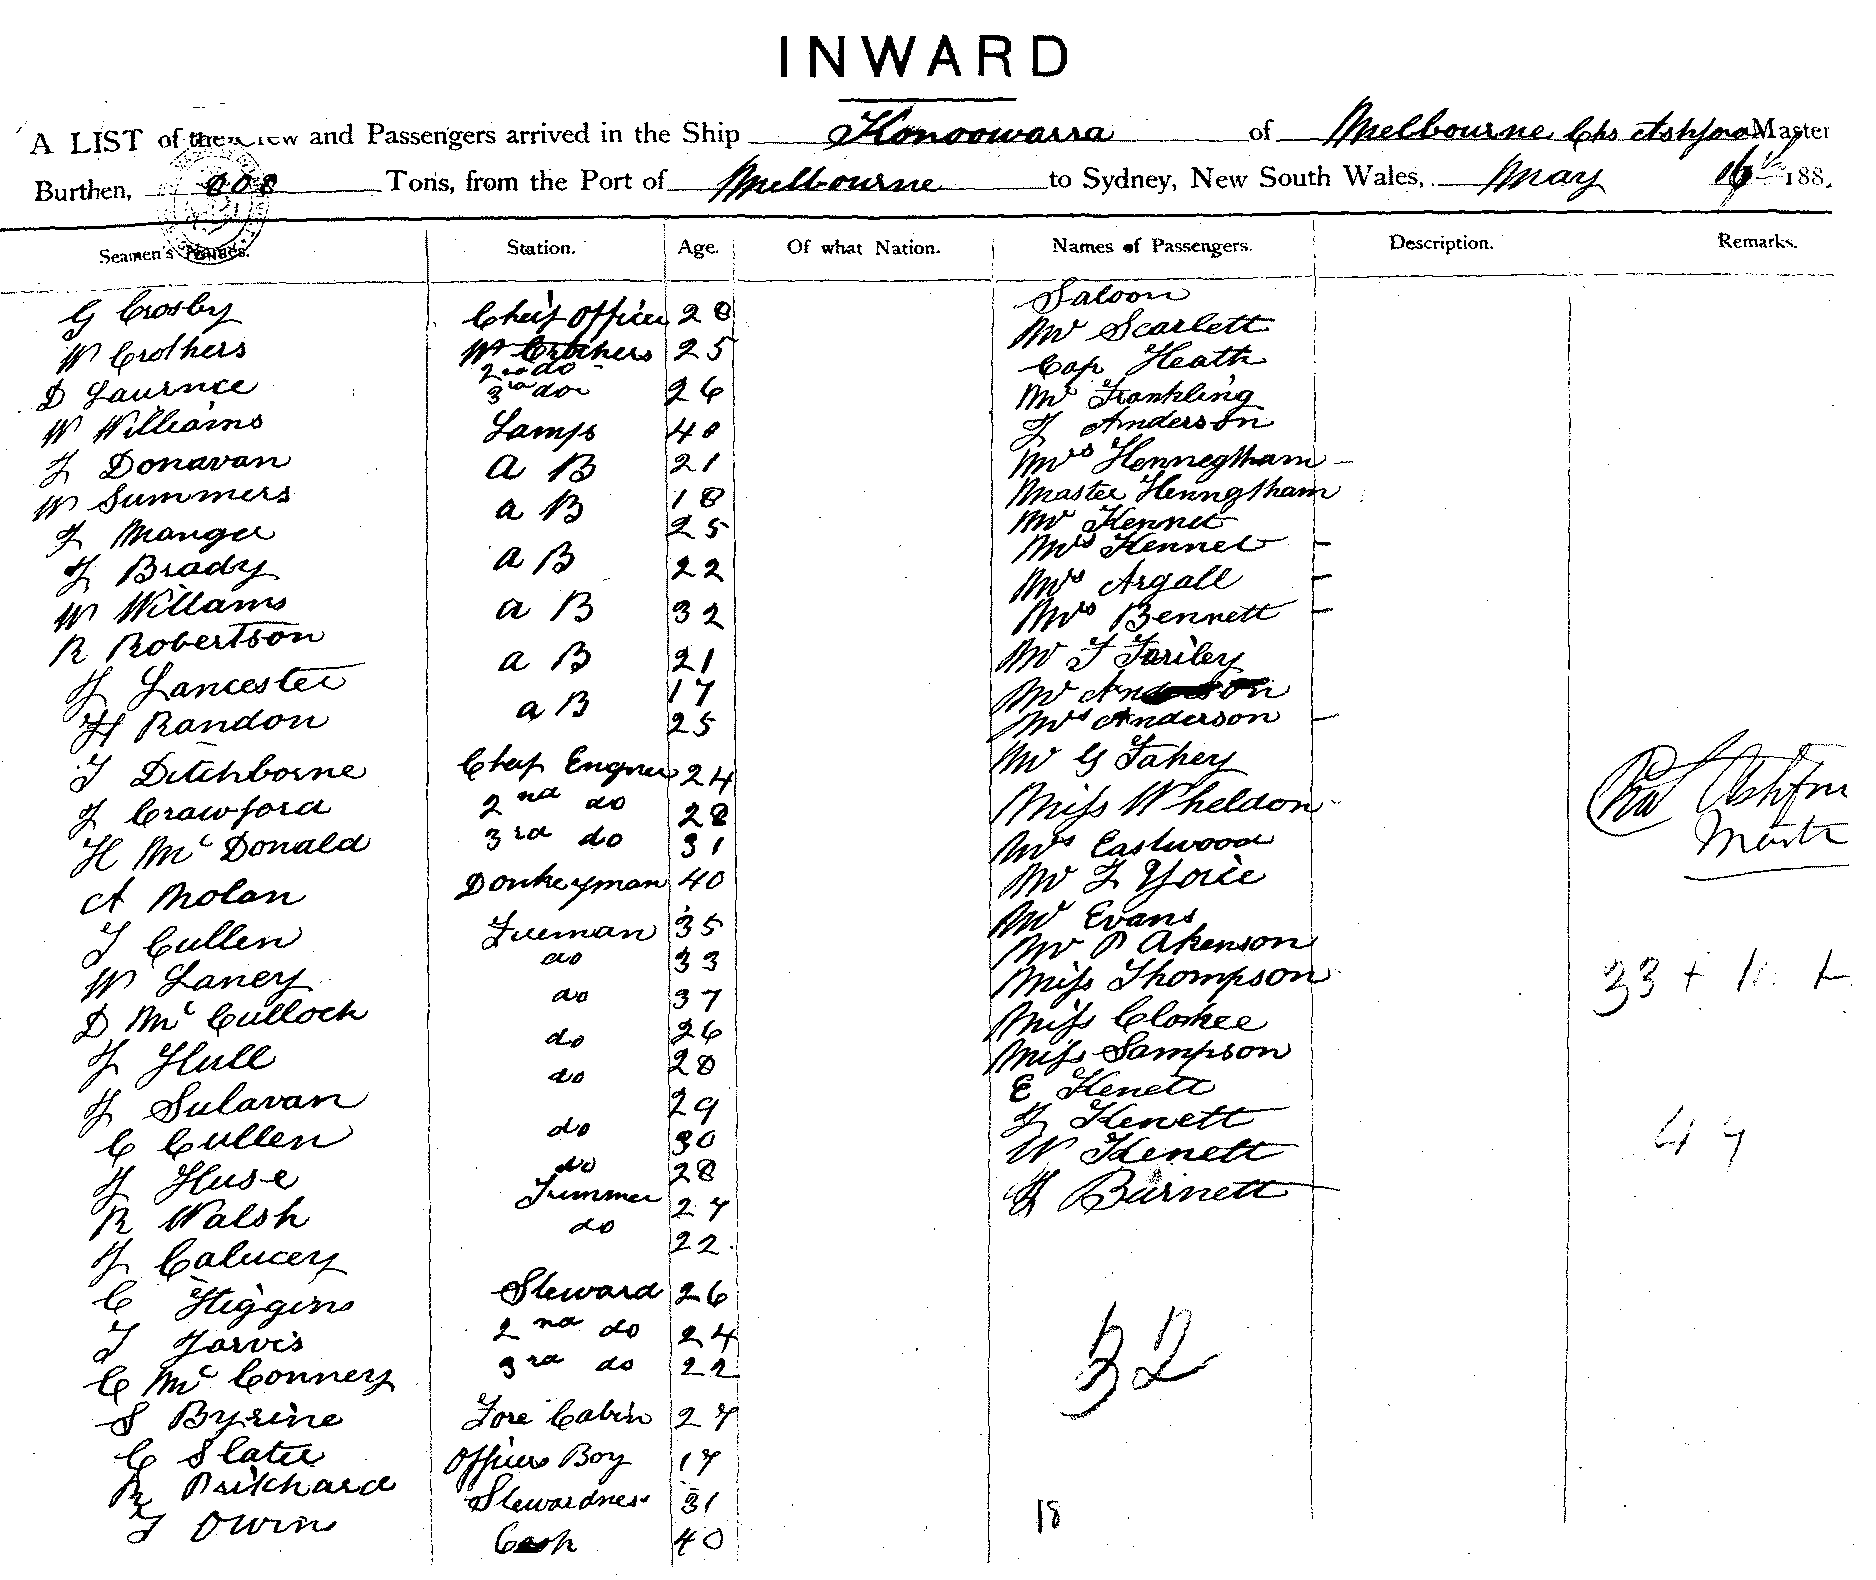 INWARD
A LIST of the Crew and Passengers arrived in the Ship Konoowarra of Melbourne Chs Ashford Master
Burthen, Tons, from the Port of Melbourne to Sydney, New South Wales, May 16th 188
Seamen's Names. Station. Age. Of what Nation. Names of Passengers. Description. Remarks.
Saloon
G Crosby Cheif Officer 28 Mr Scarlett
W Crothers W Crothers 2nd do 25 Cap Heath
D Laurnce 3rd do 26 Mr Frankling
W Williams Lamps 40 J Anderson
J Donavan A B 21 Mrs Hennegtham
W Summers a B 18 Master Henngtham
J Manger 25 Mr Kennet
J Brady a B 22 Mrs Kennet
W Willams a B 32 Mrs Argall
R Robertson a B 21 Mrs Bennett
J Lancester 17 Mr T Fariley
H Randon a B 25 Mr Anderson
Mrs Anderson
T Ditchborne Cheif Engner 24 Mr G Fahey
J Crawford 2nd do 28 Miss Wheldon
H Mc Donald 3rd do 31 Mrs Eastwood
A Nolan Donkeyman 40 Mr J
T Cullen Fireman 35 Mr Evans
W Laney do 33 Mr P Akenson
D Mc Culloch do 37 Miss Thompson
J Hull do 26 Miss Clokee
J Sulavan do 28 Miss Sampson
C Cullen 29 E Kenett
J Huse do 30 J Kenett
R Walsh do 28 W Kenett
J Calucey Trimmer 27 H Burnett
do 22
C Higgins Steward 26
T Jarvis 2nd do 24
C Mc Connery 3rd do 22
S Byrine Fore Cabin 27
C Slater Officers Boy 17
R Prichard Stewardness 31
T Owin Cook 40
Chas Ashford
Master
33 + 11
44
32
18